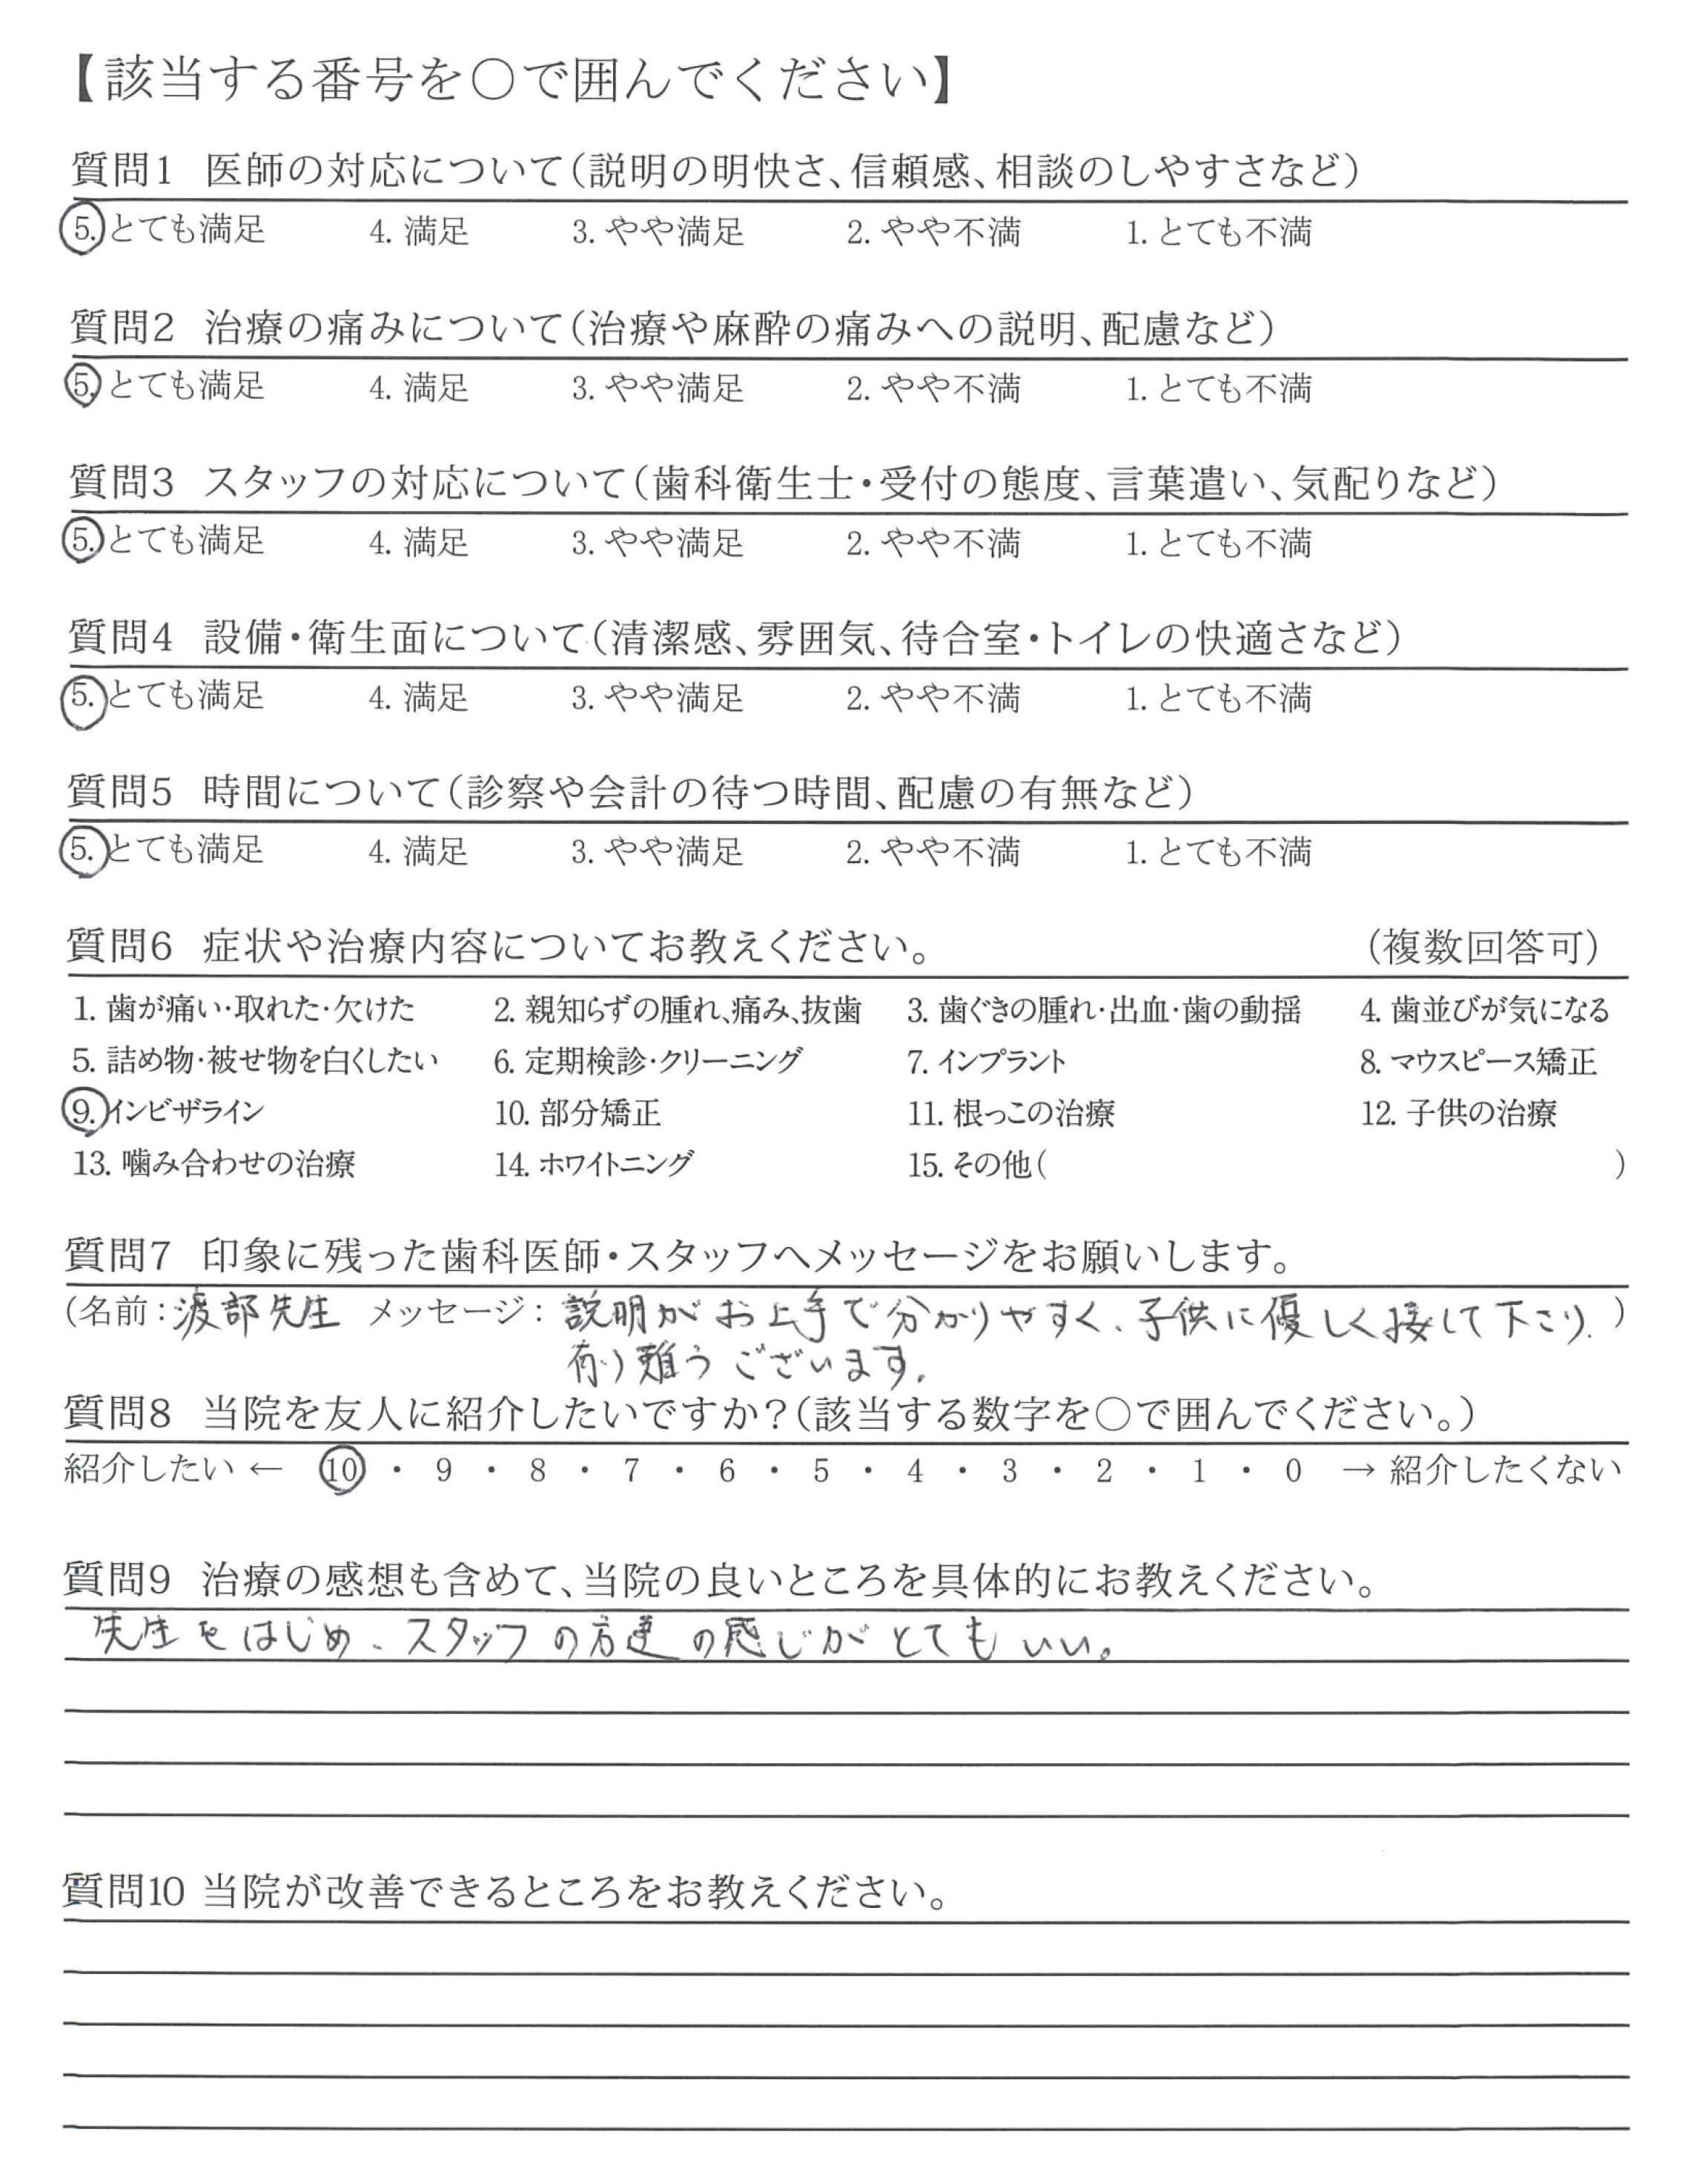 【該当する番号を○で囲んでください】
質問1 医師の対応について(説明の明快さ、信頼感、相談のしやすさなど)
5.とても満足 4.満足 3.やや満足 2.やや不満 1.とても不満
質問2 治療の痛みについて(治療や麻酔の痛みへの説明、配慮など)
5.とても満足 4.満足 3.やや満足 2.やや不満 1.とても不満
質問3 スタッフの対応について(歯科衛生士・受付の態度、言葉遣い、気配りなど)
5.とても満足 4.満足 3.やや満足 2.やや不満 1.とても不満
質問4 設備・衛生面について(清潔感、雰囲気、待合室・トイレの快適さなど)
5.とても満足 4.満足 3.やや満足 2.やや不満 1.とても不満
質問5 時間について(診察や会計の待つ時間、配慮の有無など)
5.とても満足 4.満足 3.やや満足 2.やや不満 1.とても不満
質問6 症状や治療内容についてお教えください。 (複数回答可)
1. 歯が痛い・取れた・欠けた 2. 親知らずの腫れ、痛み、抜歯 3. 歯ぐきの腫れ・出血・歯の動揺 4. 歯並びが気になる
5. 詰め物・被せ物を白くしたい 6. 定期検診・クリーニング 7. インプラント 8. マウスピース矯正
9. インビザライン 10. 部分矯正 11. 根っこの治療 12. 子供の治療
13. 噛み合わせの治療 14. ホワイトニング 15. その他( )
質問7 印象に残った歯科医師・スタッフへメッセージをお願いします。
(名前:渡部先生 メッセージ:説明がお上手で分かりやすく、子供に優しく接して下さり、)
有り難うございます。
質問8 当院を友人に紹介したいですか?(該当する数字を○で囲んでください。)
紹介したい ← 10 ・ 9 ・ 8 ・ 7 ・ 6 ・ 5 ・ 4 ・ 3 ・ 2 ・ 1 ・ 0 → 紹介したくない
質問9 治療の感想も含めて、当院の良いところを具体的にお教えください。
先生をはじめ、スタッフの方達の感じがとてもいい。
質問10 当院が改善できるところをお教えください。